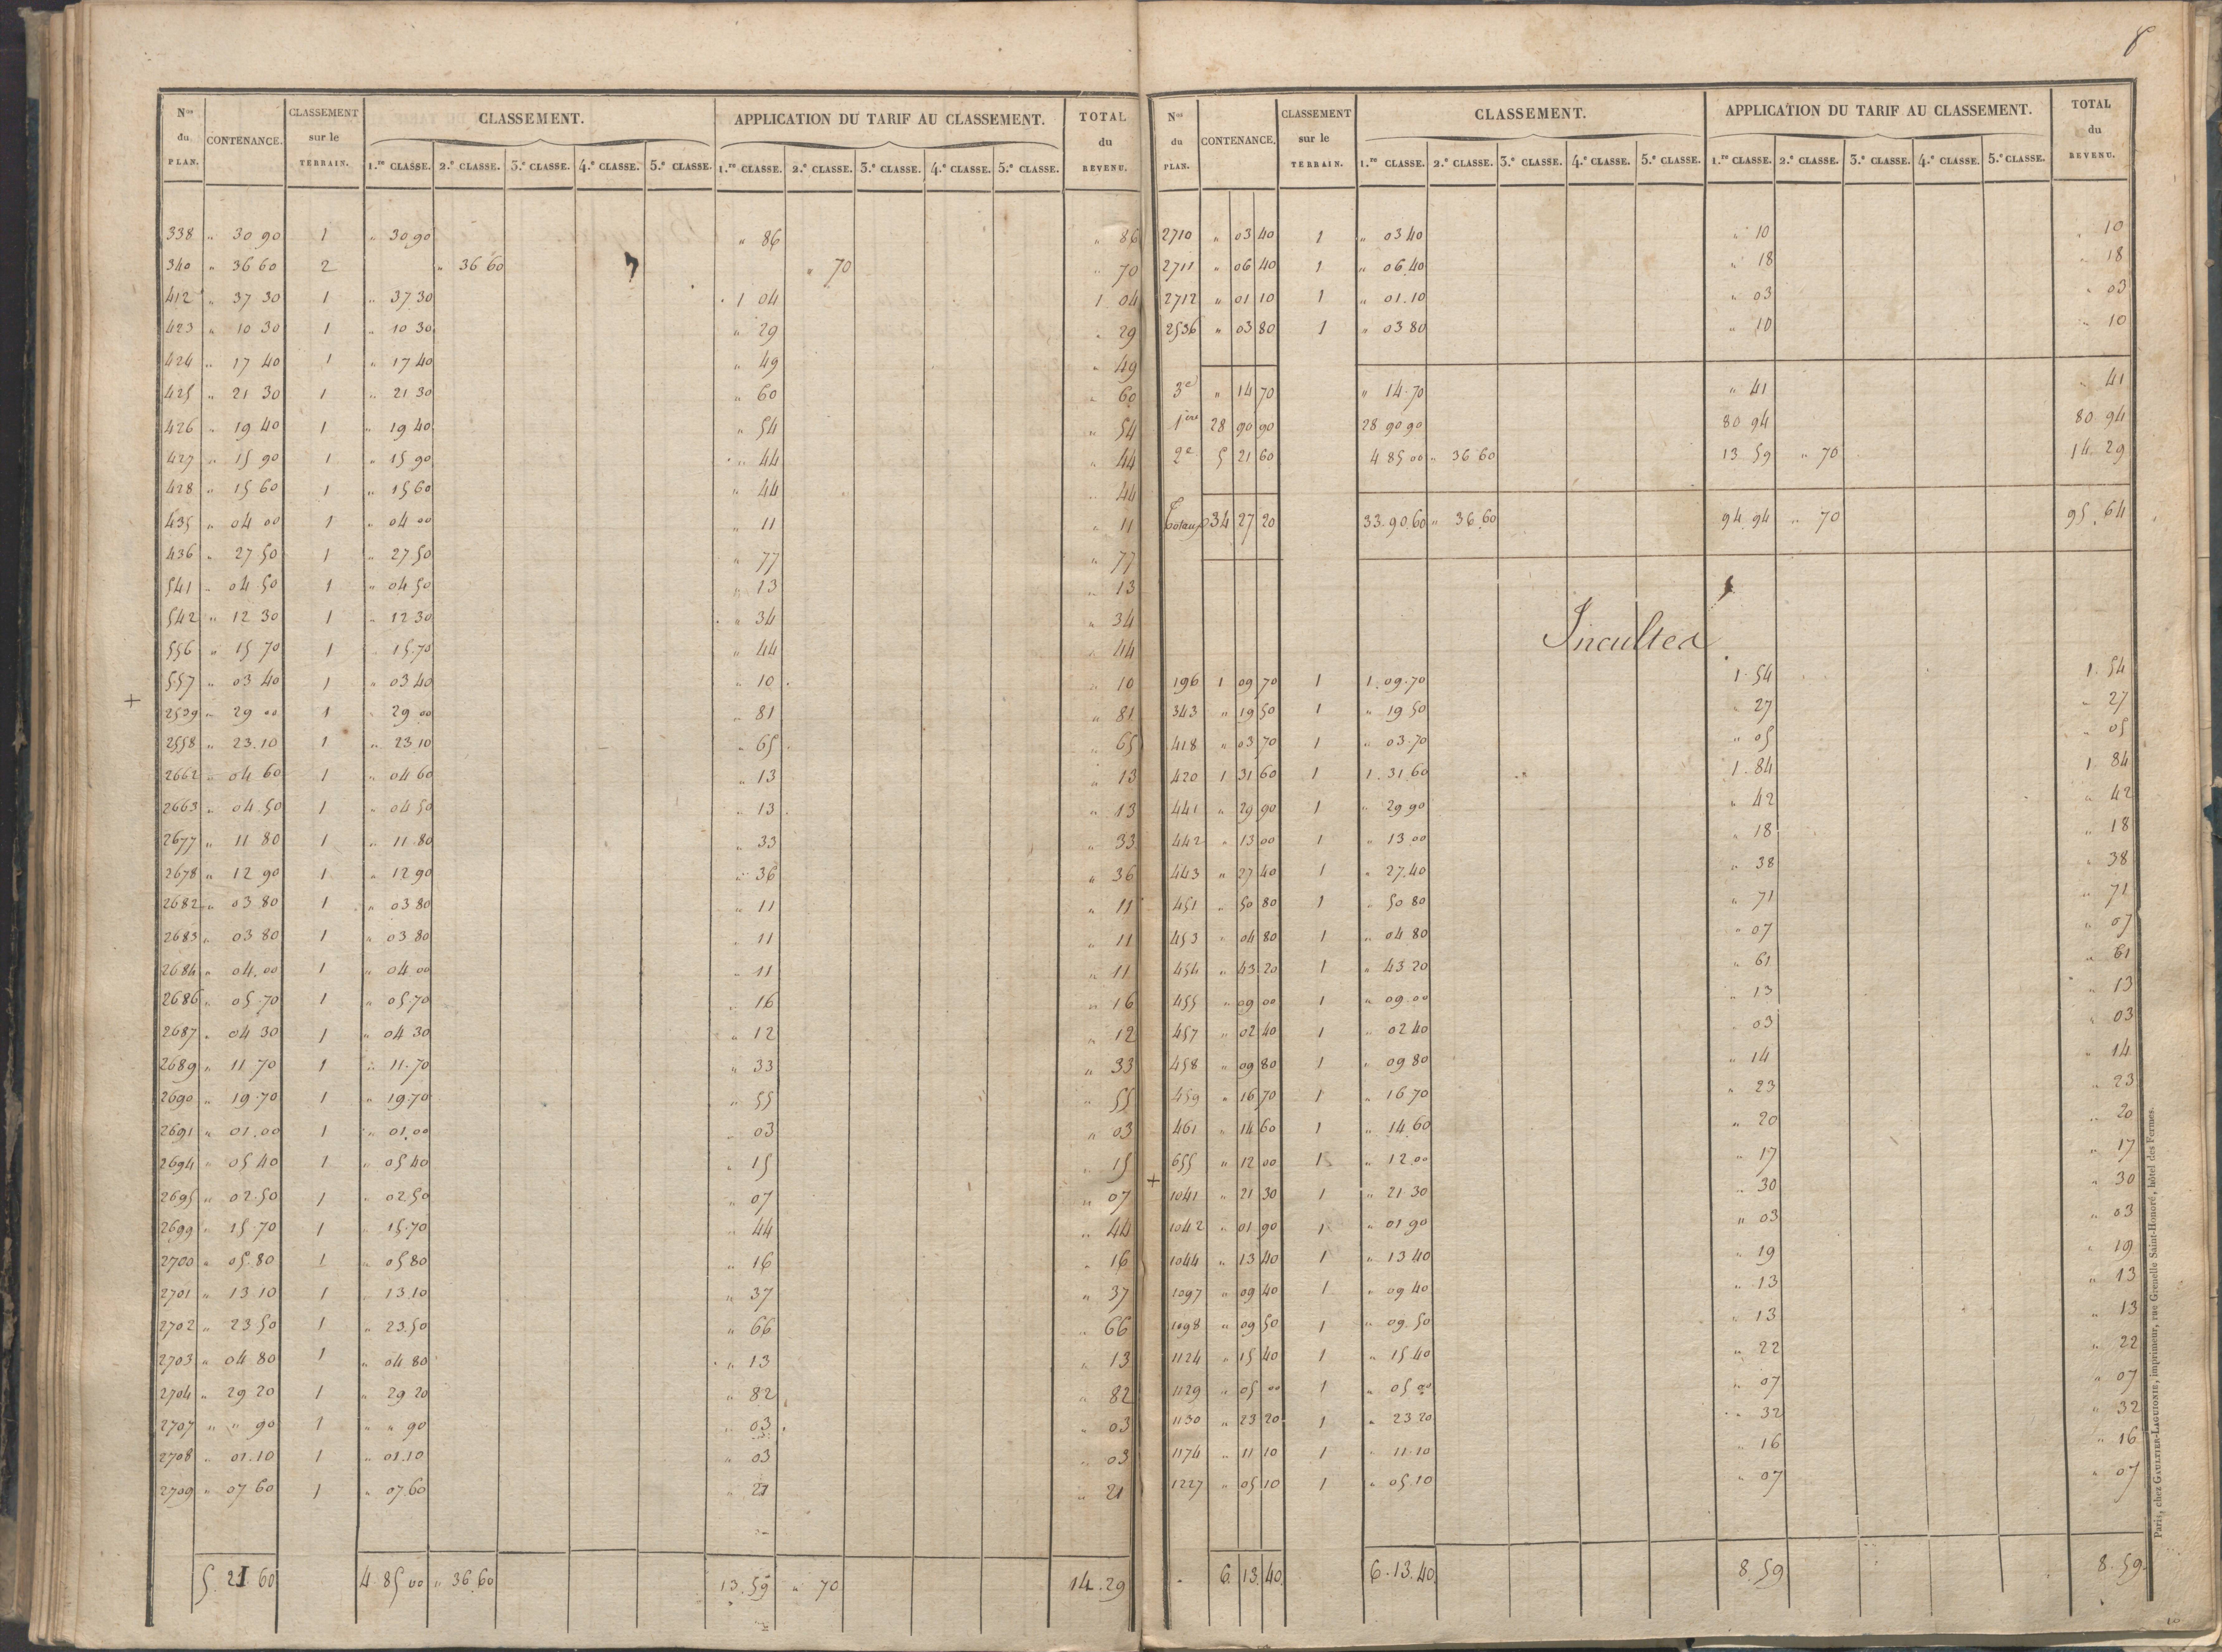 8
Nos du PLAN. CONTENANCE. CLASSEMENT sur le TERRAIN. CLASSEMENT. APPLICATION DU TARIF AU CLASSEMENT. TOTAL du REVENU.
1.re CLASSE. 2.e CLASSE. 3.e CLASSE. 4.e CLASSE. 5.e CLASSE. 1.re CLASSE. 2.e CLASSE. 3.e CLASSE. 4.e CLASSE. 5.e CLASSE.
338 " 30 90 1 " 30 90 " 86 " 86
340 " 36 60 2 " 36 60 " 70 " 70
412 " 37 30 1 " 37 30 1 04 1 04
423 " 10 30 1 " 10 30 " 29 " 29
424 " 17 40 1 " 17 40 " 49 " 49
425 " 21 30 1 " 21 30 " 60 " 60
426 " 19 40 1 " 19 40 " 54 " 54
427 " 15 90 1 " 15 90 " 44 " 44
428 " 15 60 1 " 15 60 " 44 " 44
435 " 04 00 1 " 04 00 " 11 " 11
436 " 27 50 1 " 27 50 " 77 " 77
541 " 04 50 1 " 04 50 " 13 " 13
542 " 12 30 1 " 12 30 " 34 " 34
556 " 15 70 1 " 15.70 " 44 " 44
557 " 03 40 1 " 03 40 " 10 " 10
2539 " 29 00 1 " 29 00 " 81 " 81
2558 " 23.10 1 " 23 10 " 65 " 65
2662 " 04 60 1 " 04 60 " 13 " 13
2663 " 04.50 1 " 04 50 " 13 " 13
2677 " 11 80 1 " 11.80 " 33 " 33
2678 " 12 90 1 " 12 90 " 36 " 36
2682 " 03 80 1 " 03 80 " 11 " 11
2683 " 03 80 1 " 03 80 " 11 " 11
2684 " 04.00 1 " 04 00 " 11 " 11
2686 " 05.70 1 " 05.70 " 16 " 16
2687 " 04 30 1 " 04 30 " 12 " 12
2689 " 11 70 1 " 11.70 " 33 " 33
2690 " 19.70 1 " 19.70 " 55 " 55
2691 " 01.00 1 " 01.00 " 03 " 03
2694 " 05 40 1 " 05 40 " 15 " 15
2695 " 02.50 1 " 02.50 " 07 " 07
2699 " 15.70 1 " 15.70 " 44 " 44
2700 " 05.80 1 " 05 80 " 16 " 16
2701 " 13 10 1 " 13.10 " 37 " 37
2702 " 23 50 1 " 23.50 " 66 " 66
2703 " 04 80 1 " 04 80 " 13 " 13
2704 " 29 20 1 " 29 20 " 82 " 82
2707 " " 90 1 " " 90 " 03 " 03
2708 " 01.10 1 " 01.10 " 03 " 03
2709 " 07 60 1 " 07.60 " 21 " 21
5. 21 60 4.85 00 " 36.60 13.59 " 70 14.29
Nos du PLAN. CONTENANCE. CLASSEMENT sur le TERRAIN. CLASSEMENT. APPLICATION DU TARIF AU CLASSEMENT. TOTAL du REVENU.
1.re CLASSE. 2.e CLASSE. 3.e CLASSE. 4.e CLASSE. 5.e CLASSE. 1.re CLASSE. 2.e CLASSE. 3.e CLASSE. 4.e CLASSE. 5.e CLASSE.
2710 " 03 40 1 " 03 40 " 10 " 10
2711 " 06 40 1 " 06.40 " 18 " 18
2712 " 01 10 1 " 01.10 " 03 " 03
2536 " 03 80 1 " 03 80 " 10 " 10
3e " 14 70 " 14.70 " 41 " 41
1ere 28 90 90 28 90 90 80 94 80 94
2e 5 21 60 4 85 00 " 36 60 13 59 " 70 14.29
Totaux 34 27 20 33.90.60 " 36.60 94.94 " 70 95.64
Incultes
196 1 09 70 1 1.09.70 1.54 1.54
343 " 19 50 1 " 19 50 " 27 " 27
418 " 03 70 1 " 03.70 " 05 " 05
420 1 31 60 1 1.31.60 1.84 1 84
441 " 29 90 1 " 29 90 " 42 " 42
442 " 13 00 1 " 13 00 " 18 " 18
443 " 27 40 1 " 27.40 " 38 " 38
451 " 50 80 1 " 50 80 " 71 " 71
453 " 04 80 1 " 04 80 " 07 " 07
454 " 43 20 1 " 43 20 " 61 " 61
455 " 09 00 1 " 09.00 " 13 " 13
457 " 02 40 1 " 02 40 " 03 " 03
458 " 09 80 1 " 09 80 " 14 " 14
459 " 16 70 1 " 16 70 " 23 " 23
461 " 14 60 1 " 14.60 " 20 " 20
655 " 12 00 1 " 12.00 " 17 " 17
1041 " 21 30 1 " 21 30 " 30 " 30
1042 " 01 90 1 " 01 90 " 03 " 03
1044 " 13 40 1 " 13 40 " 19 " 19
1097 " 09 40 1 " 09 40 " 13 " 13
1098 " 09 50 1 " 09.50 " 13 " 13
1124 " 15 40 1 " 15 40 " 22 " 22
1129 " 05 00 1 " 05 00 " 07 " 07
1130 " 23 20 1 " 23 20 " 32 " 32
1174 " 11 10 1 " 11.10 " 16 " 16
1227 " 05 10 1 " 05.10 " 07 " 07
6. 13. 40. 6.13.40. 8.59 8.59.
Paris, chez GAULTIER-LAGUIONIE, imprimeur, rue Grenelle Saint-Honoré, hôtel des Fermes.
10